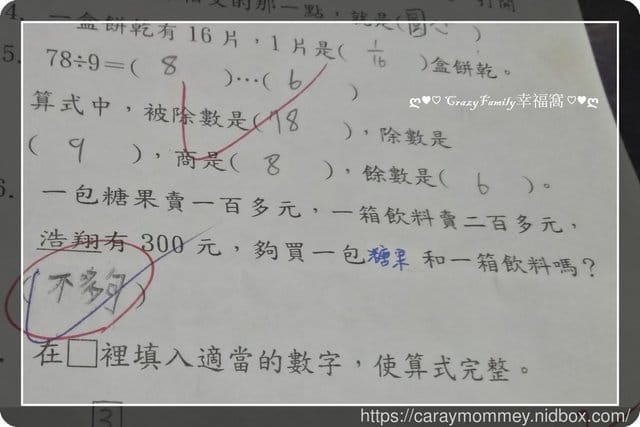 4. 一盒餅乾有 16 片，1 片是( 1/16 )盒餅乾。
5. 78÷9＝( 8 )…( 6 )
算式中，被除數是(78 )，除數是
( 9 )，商是( 8 )，餘數是( 6 )。
ღ♥♡ CrazyFamily幸福窩♡♥ღ
6. 一包糖果賣一百多元，一箱飲料賣二百多元，
浩翔有 300 元，夠買一包糖果 和一箱飲料嗎？
(不夠)
在□裡填入適當的數字，使算式完整。
3
https://caraymommey.nidbox.com/